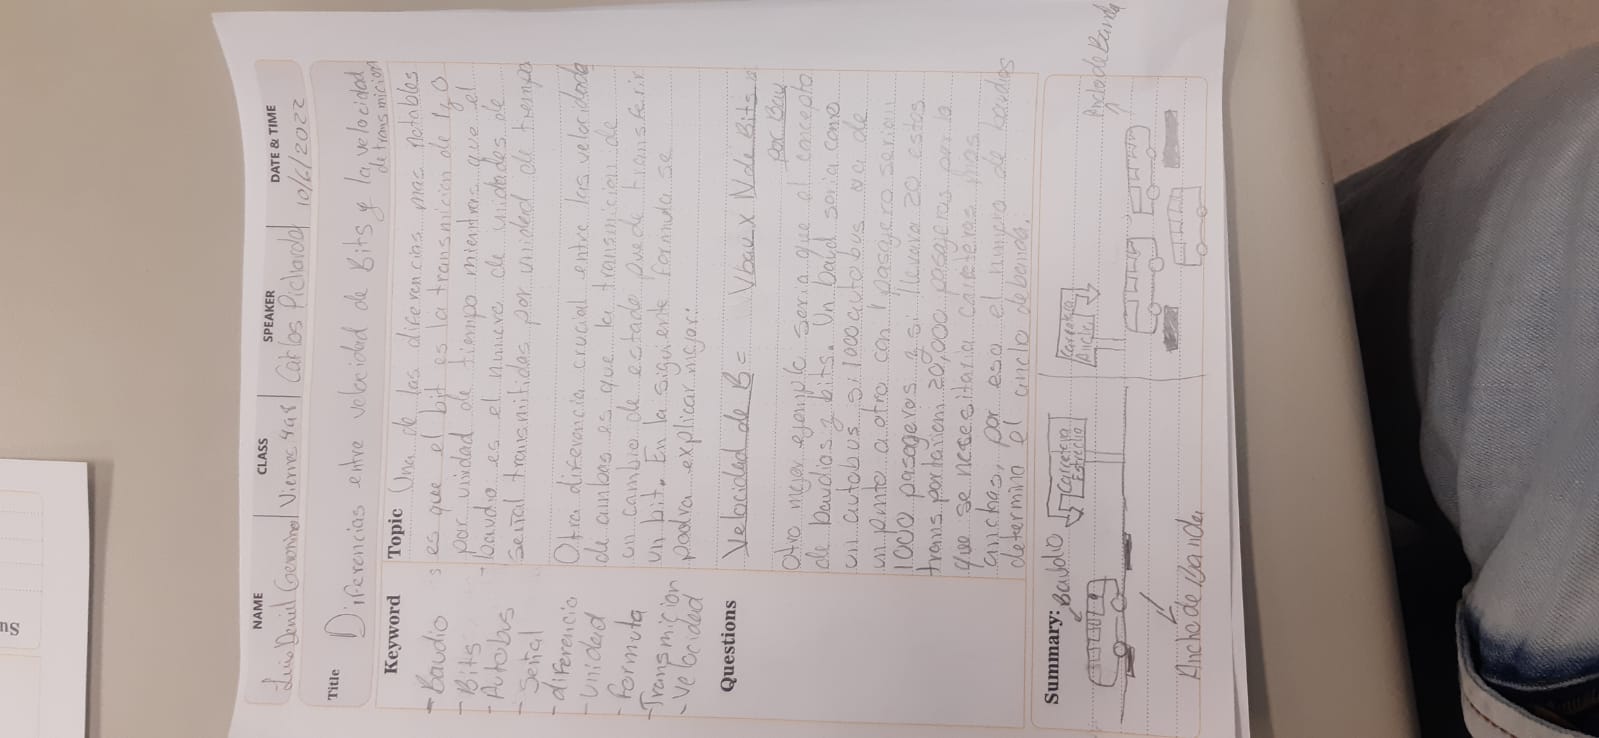 NAME CLASS SPEAKER DATE & TIME
Luis Daniel Geronimo Viernes 4as Carlos Pichardo 10/6/2022
Title Diferencias entre velocidad de Bits y la velocidad
de transmicion
Keyword
- Baudio
- Bits
- Autobus
- señal
- diferencia
- Unidad
- formula
- Transmicion
- velocidad
Topic Una de las diferencias mas notables
es que el bit es la transmicion de 1 y 0
por unidad de tiempo mientras que el
baudio es el numero de unidades de
señal transmitidas por unidad de tiempo
Otra diferencia crucial entre las velocidades
de ambas es que la transmicion de
un cambio de estado puede transferir
un bit. En la siguiente formula se
podra explicar mejor:
Velocidad de B = Vbau x N de Bits
por Bau
Otro mejor ejemplo seria que el concepto
de baudios y bits. Un baud seria como
un autobus si 1000 autobus va de
un punto a otro con 1 pasagero serian
1000 pasageros y si llevara 20 estos
transportarian 20,000 pasageros por lo
que se necesitaria carreteras mas
anchas, por eso el numero de baudios
determina el ancho de banda.
Questions
Summary: Baudio
Carretera
Estrecha
Carretera
Ancha
Ancho de Banda
Ancho de banda
ns